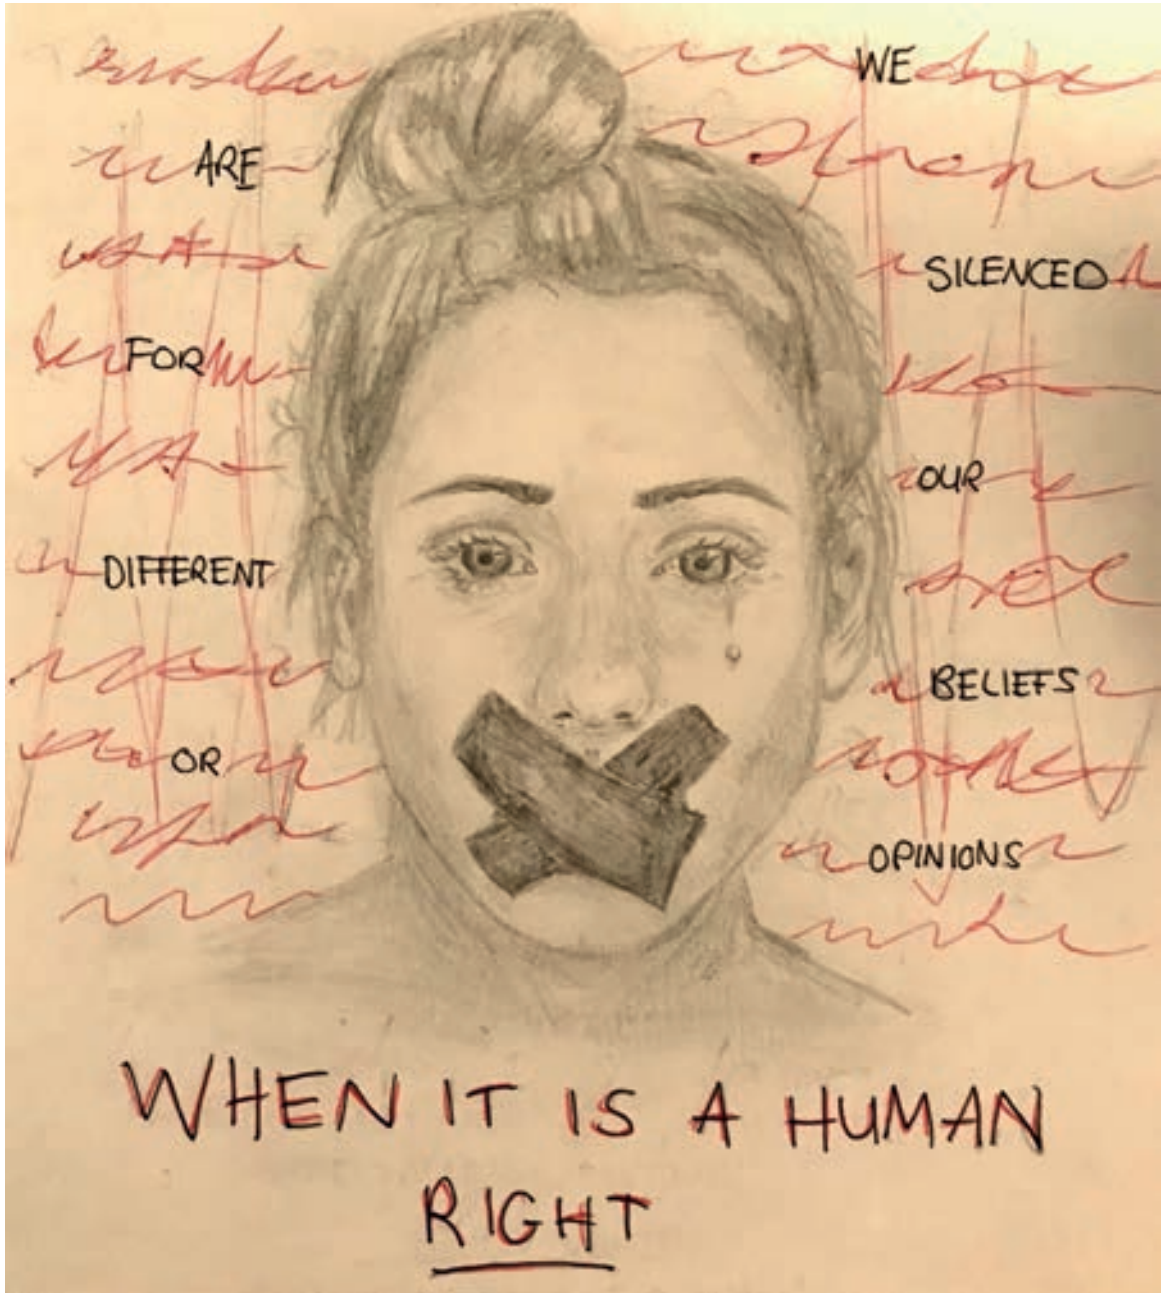 WE
ARE
SILENCED
FOR
OUR
DIFFERENT
BELIEFS
OR
OPINIONS
WHEN IT IS A HUMAN
RIGHT